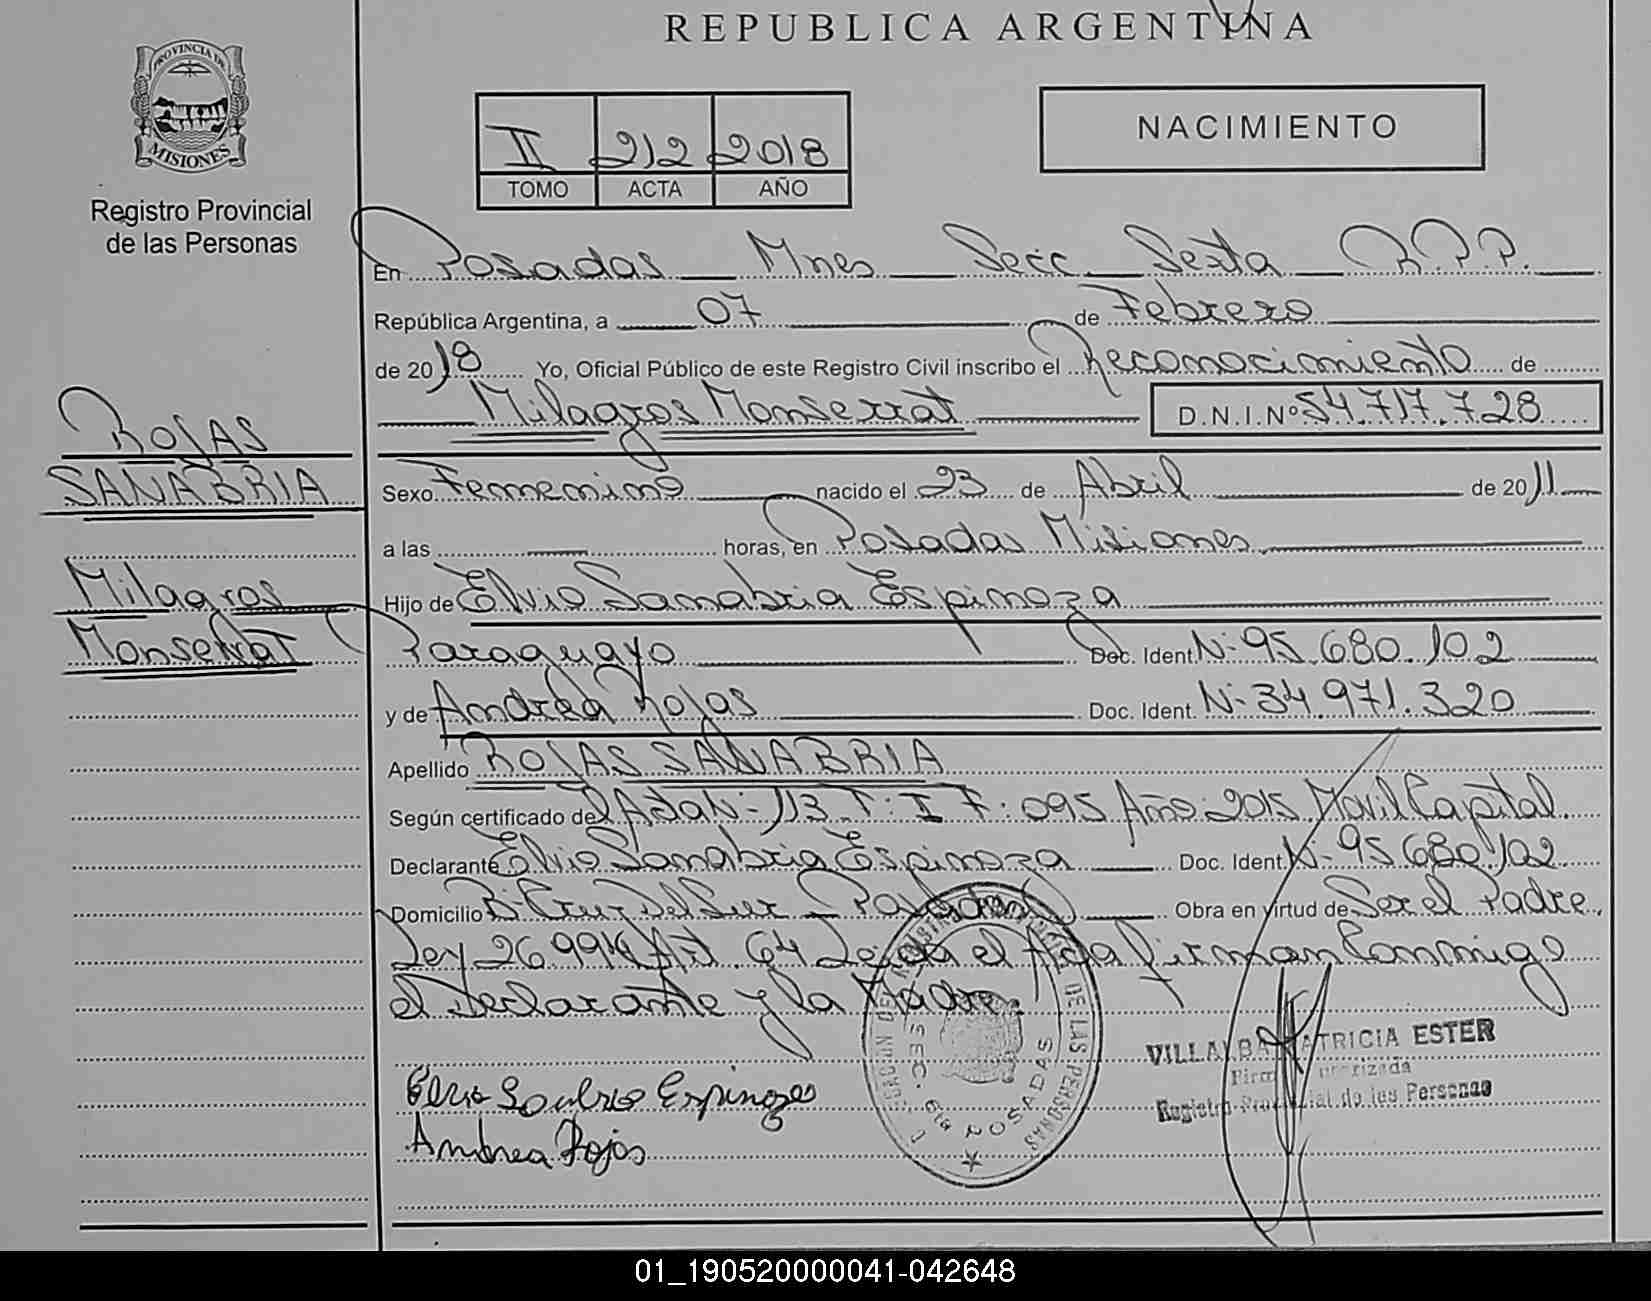 REPUBLICA ARGENTINA
PROVINCIA DE
MISIONES
Registro Provincial
de las Personas
II 212 2018
TOMO ACTA AÑO
NACIMIENTO
En Posadas Mnes Secc. Sexta R.P.P.
República Argentina, a 07 de Febrero
de 2018 Yo, Oficial Público de este Registro Civil inscribo el Reconocimiento de
Milagros Monserrat D.N.I.Nº 54.717.728
ROJAS
SANABRIA
Milagros
Monserrat
Sexo Femenino nacido el 23 de Abril de 2011
a las horas, en Posadas Misiones
Hijo de Elvio Sanabria Espinoza
Paraguayo Doc. Ident. Nº 95.680.102
y de Andrea Rojas Doc. Ident. Nº 34.971.320
Apellido ROJAS SANABRIA
Según certificado del Acta Nº 113 T: I F: 095 Año: 2015 Movil Capital
Declarante Elvio Sanabria Espinoza Doc. Ident. Nº 95.680.102
Domicilio Bº Cruz Del Sur Posadas Obra en virtud de Ser el Padre
Ley 26.994 Art. 64 Leida el Acta firman Conmigo
el Declarante y la Madre.
Elvio Espinoza
Andrea Rojas
DE LAS PERSONAS
SEC. 6ta POSADAS
VILLALBA PATRICIA ESTER
Registro Provincial de las Personas
01_190520000041-042648